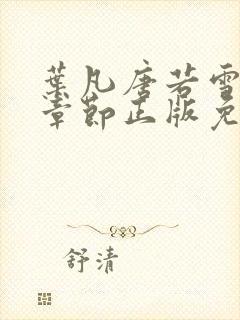 葉凡唐若雪
章節正版免
舒清